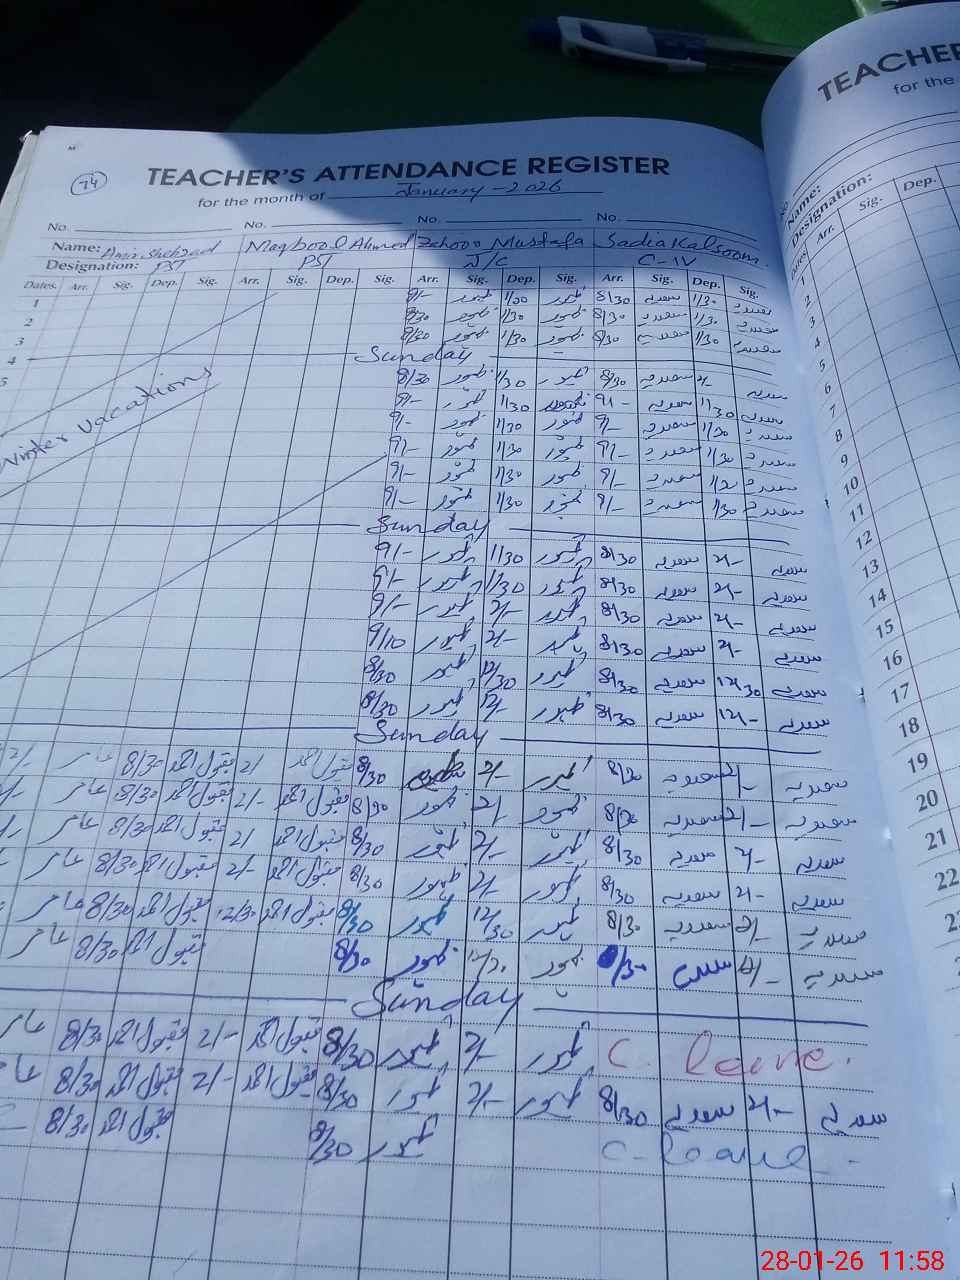 74
TEACHER'S ATTENDANCE REGISTER
for the month of January-2026
No. No. No. No.
Name: Amir Shehzad Maqbool Ahmed Zahoor Mustafa Sadia Kalsoom.
Designation: PST PST J/C C-IV
Dates. Arr. Sig. Dep. Sig. Arr. Sig. Dep. Sig. Arr. Sig. Dep. Sig. Arr. Sig. Dep. Sig.
1 9/- ظہور 1/30 ظہور 8/30 سعدیہ 1/30 سعدیہ
2 8/30 ظہور 1/30 ظہور 8/30 سعدیہ 1/30 سعدیہ
3 8/30 ظہور 1/30 ظہور 8/30 سعدیہ 1/30 سعدیہ
4 Sunday
5 8/30 ظہور 1/30 ظہور 8/30 سعدیہ 2/- سعدیہ
Winter Vacations
9/- ظہور 1/30 ظہور 9/- سعدیہ 1/30 سعدیہ
9/- ظہور 1/30 ظہور 9/- سعدیہ 1/30 سعدیہ
9/- ظہور 1/30 ظہور 9/- سعدیہ 1/30 سعدیہ
9/- ظہور 1/30 ظہور 9/- سعدیہ 1/30 سعدیہ
9/- ظہور 1/30 ظہور 9/- سعدیہ 1/30 سعدیہ
Sunday
9/- ظہور 1/30 ظہور 8/30 سعدیہ 2/- سعدیہ
9/- ظہور 1/30 ظہور 8/30 سعدیہ 2/- سعدیہ
9/- ظہور 2/- ظہور 8/30 سعدیہ 2/- سعدیہ
9/10 ظہور 2/- ظہور 8/30 سعدیہ 2/- سعدیہ
8/30 ظہور 12/30 ظہور 8/30 سعدیہ 12/30 سعدیہ
8/30 ظہور 12/- ظہور 8/30 سعدیہ 12/- سعدیہ
Sunday
2/- عامر 8/30 مقبول احمد 2/ مقبول احمد 8/30 2/- ظہور 8/30 سعدیہ 2/- سعدیہ
عامر 8/30 مقبول احمد 2/- مقبول احمد 8/30 ظہور 2/ ظہور 8/30 سعدیہ 2/- سعدیہ
عامر 8/30 مقبول احمد 2/ مقبول احمد 8/30 ظہور 2/- ظہور 8/30 سعدیہ 2/- سعدیہ
عامر 8/30 مقبول احمد 2/- مقبول احمد 8/30 ظہور 2/- ظہور 8/30 سعدیہ 2/- سعدیہ
عامر 8/30 مقبول احمد 12/30 مقبول احمد 8/30 ظہور 12/30 ظہور 8/30 سعدیہ 2/- سعدیہ
عامر 8/30 مقبول احمد 8/30 ظہور 12/30 ظہور 8/30 2/- سعدیہ
Sunday
عامر 8/30 مقبول احمد 2/- مقبول احمد 8/30 ظہور 2/- ظہور C. leave.
عامر 8/30 مقبول احمد 2/- مقبول احمد 8/30 ظہور 2/- ظہور 8/30 سعدیہ 2/- سعدیہ
8/30 مقبول احمد 8/30 ظہور C-leave-
TEACHE
for the
Name:
Designation:
Dates Arr. Sig. Dep.
1
2
3
4
5
6
7
8
9
10
11
12
13
14
15
16
17
18
19
20
21
22
28-01-26 11:58